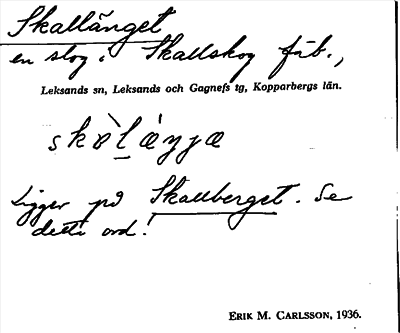 Skallänget
en slog i Skallskog fäb.,
Leksands sn, Leksands och Gagnefs tg, Kopparbergs län.
Ligger på Skallberget. Se
detta ord!
ERIK M. CARLSSON, 1936.